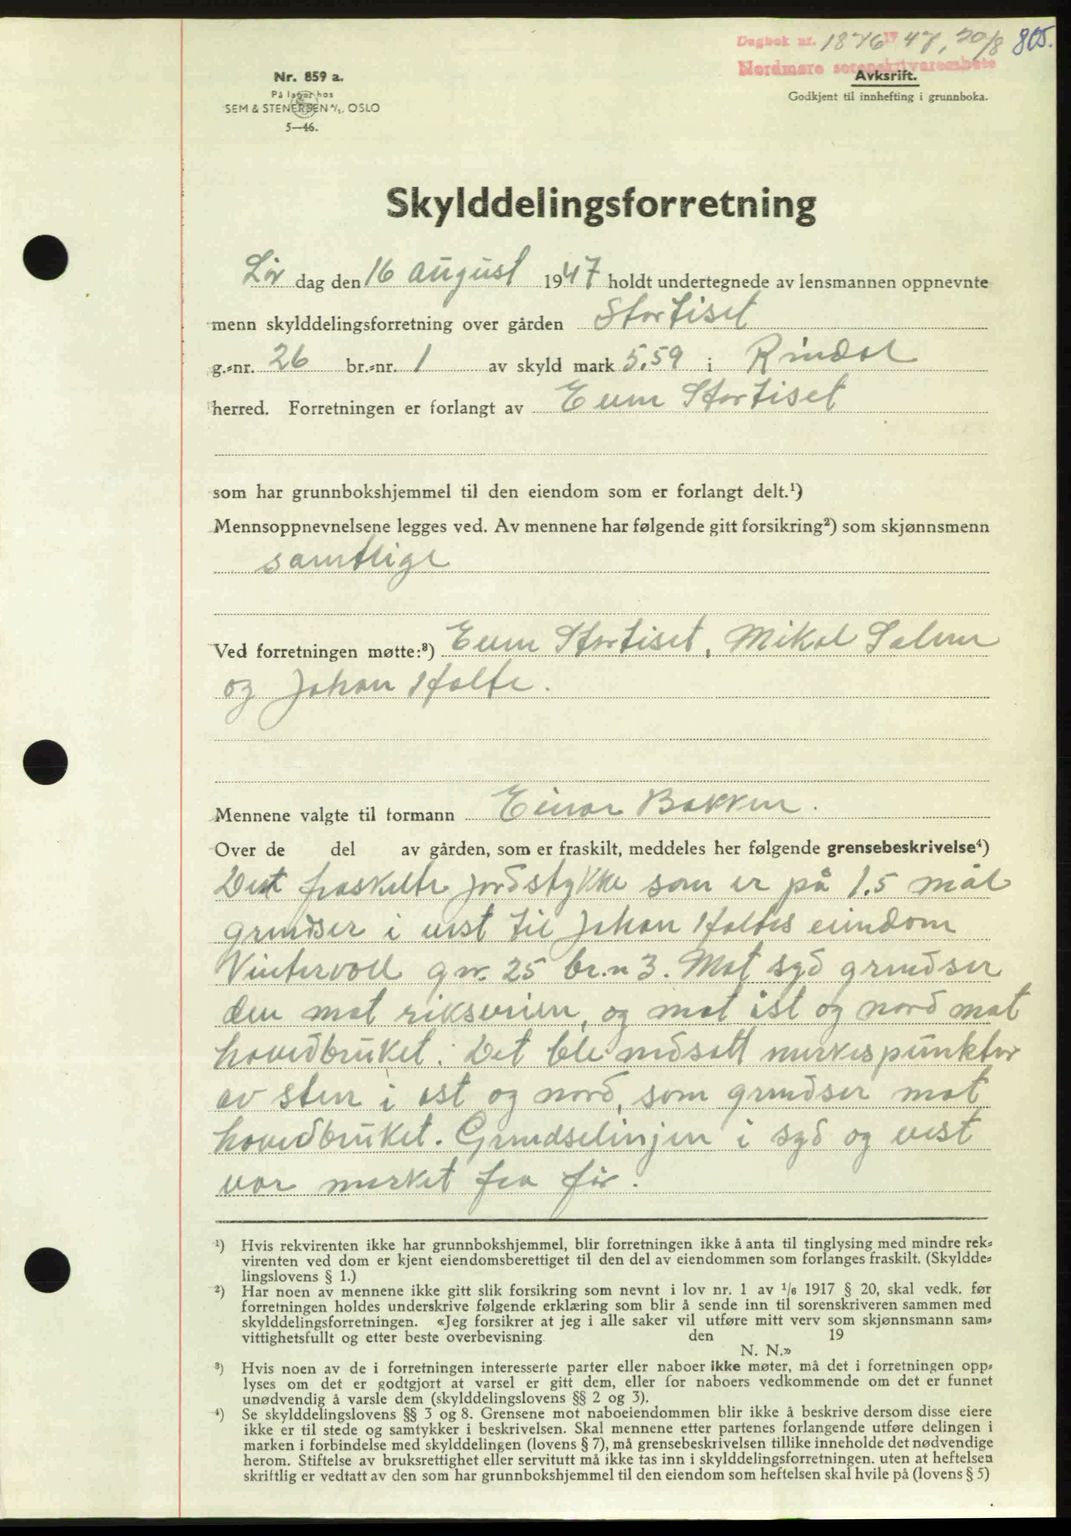 Dagbok nr. 1876 1947, 20/8 805.
Nordmøre sorenskriverembete
Nr. 859 a.
Avskrift.
På lager hos
Godkjent til innhefting i grunnboka.
SEM & STENERSEN A/S. OSLO
5—46.
Skylddelingsforretning
Lør dag den 16 august 1947 holdt undertegnede av lensmannen oppnevnte
menn skylddelingsforretning over gården Stortiset
g.nr. 26 br.nr. 1 av skyld mark 5.59 i Rindal
herred. Forretningen er forlangt av Even Stortiset
som har grunnbokshjemmel til den eiendom som er forlangt delt.¹)
Mennsoppnevnelsene legges ved. Av mennene har følgende gitt forsikring²) som skjønnsmenn
samtlige
Ved forretningen møtte:³) Even Stortiset, Mikal
og Johan Holte.
Mennene valgte til formann Einar Bakken.
Over de del av gården, som er fraskilt, meddeles her følgende grensebeskrivelse⁴)
Det fraskilte jordstykke som er på 1.5 mål
grendser i vest til Johan Holtes eiendom
Vintervoll gnr. 25 br.n 3. Mot syd grendser
den mot riksveien, og mot øst og nord mot
hovedbruket. Det ble nedsatt merkespunkter
av sten i øst og nord, som grendser mot
hovedbruket. Grendselinjen i syd og vest
var merket fra før.
¹) Hvis rekvirenten ikke har grunnbokshjemmel, blir forretningen ikke å anta til tinglysing med mindre rek-
virenten ved dom er kjent eiendomsberettiget til den del av eiendommen som forlanges fraskilt. (Skyldde-
lingslovens § 1.)
²) Har noen av mennene ikke gitt slik forsikring som nevnt i lov nr. 1 av 1/6 1917 § 20, skal vedk. før
forretningen holdes underskrive følgende erklæring som blir å sende inn til sorenskriveren sammen med
skylddelingsforretningen. «Jeg forsikrer at jeg i alle saker vil utføre mitt verv som skjønnsmann sam-
vittighetsfullt og etter beste overbevisning. den 19
N. N.»
³) Hvis noen av de i forretningen interesserte parter eller naboer ikke møter, må det i forretningen opp-
lyses om det er godtgjort at varsel er gitt dem, eller for naboers vedkommende om det er funnet
unødvendig å varsle dem (skylddelingslovens §§ 2 og 3).
⁴) Se skylddelingslovens §§ 3 og 8. Grensene mot naboeiendommen blir ikke å beskrive dersom disse eiere
ikke er til stede og samtykker i beskrivelsen. Skal mennene etter partenes forlangende utføre delingen i
marken i forbindelse med skylddelingen (lovens § 7), må grensebeskrivelsen tillike inneholde det nødvendige
herom. Stiftelse av bruksrettighet eller servitutt må ikke tas inn i skylddelingsforretningen. uten at heftelsen
skriftlig er vedtatt av den som har grunnbokshjemmel til den eiendom som heftelsen skal hvile på (lovens § 5)